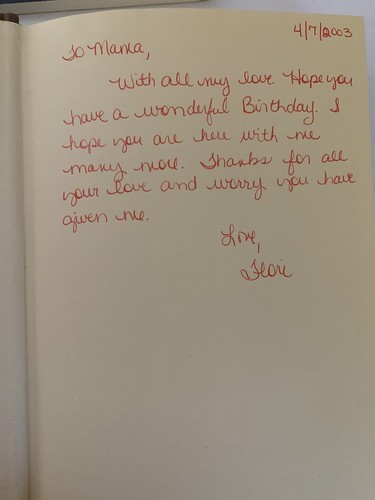 4/7/2003
To Mama,
With all my love. Hope you
have a wonderful Birthday. I
hope you are here with me
many more. Thanks for all
your love and worry you have
given me.
Love,